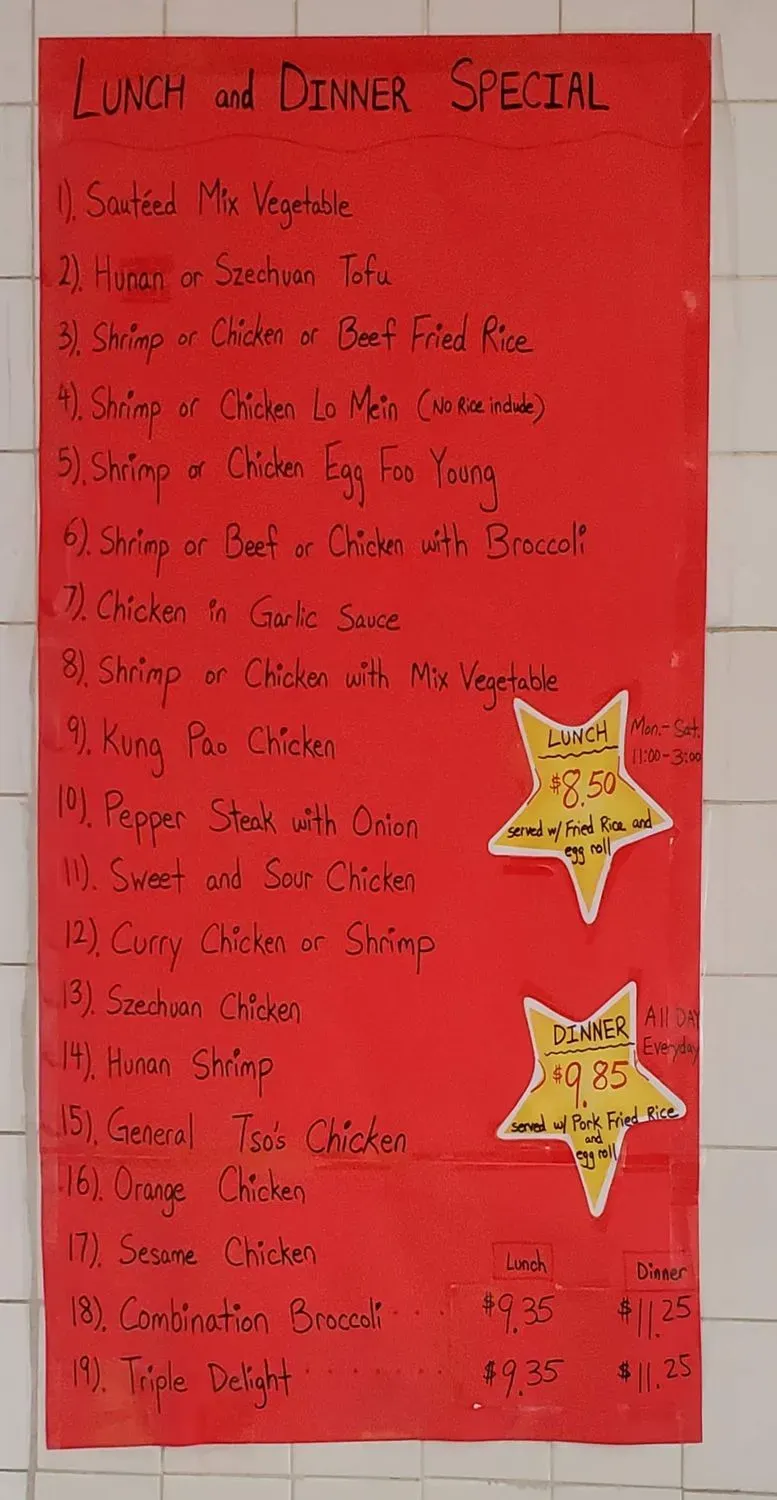 LUNCH and DINNER SPECIAL
1). Sautéed Mix Vegetable
2). Hunan or Szechuan Tofu
3). Shrimp or Chicken or Beef Fried Rice
4). Shrimp or Chicken Lo Mein (No Rice include)
5). Shrimp or Chicken Egg Foo Young
6). Shrimp or Beef or Chicken with Broccoli
7). Chicken in Garlic Sauce
8). Shrimp or Chicken with Mix Vegetable
9). Kung Pao Chicken
10). Pepper Steak with Onion
11). Sweet and Sour Chicken
12). Curry Chicken or Shrimp
13). Szechuan Chicken
14). Hunan Shrimp
15). General Tso's Chicken
16). Orange Chicken
17). Sesame Chicken
LUNCH
$8.50
served w/ Fried Rice and
egg roll
Mon.-Sat.
11:00-3:00
DINNER
$9.85
served w/ Pork Fried Rice
and
egg roll
All DAY
Everyday
Lunch Dinner
18). Combination Broccoli $9.35 $11.25
19). Triple Delight $9.35 $11.25